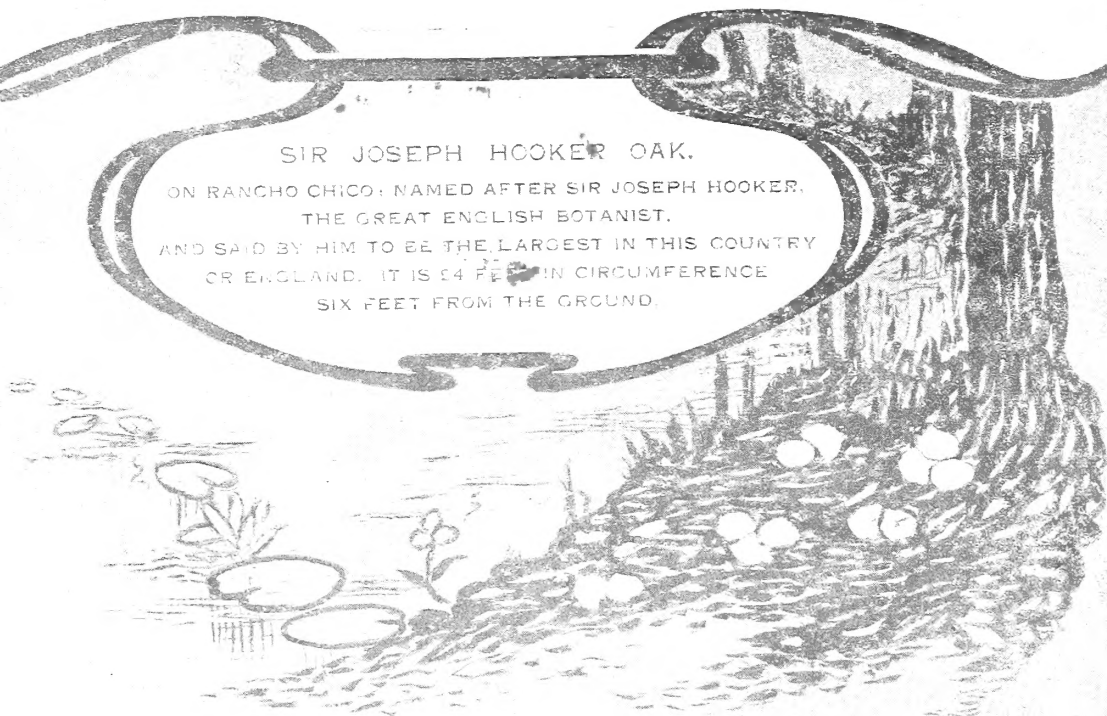 SIR JOSEPH HOOKER OAK.
ON RANCHO CHICO: NAMED AFTER SIR JOSEPH HOOKER,
THE GREAT ENGLISH BOTANIST,
AND SAID BY HIM TO BE THE LARGEST IN THIS COUNTRY
OR ENGLAND. IT IS FEET IN CIRCUMFERENCE
SIX FEET FROM THE GROUND.